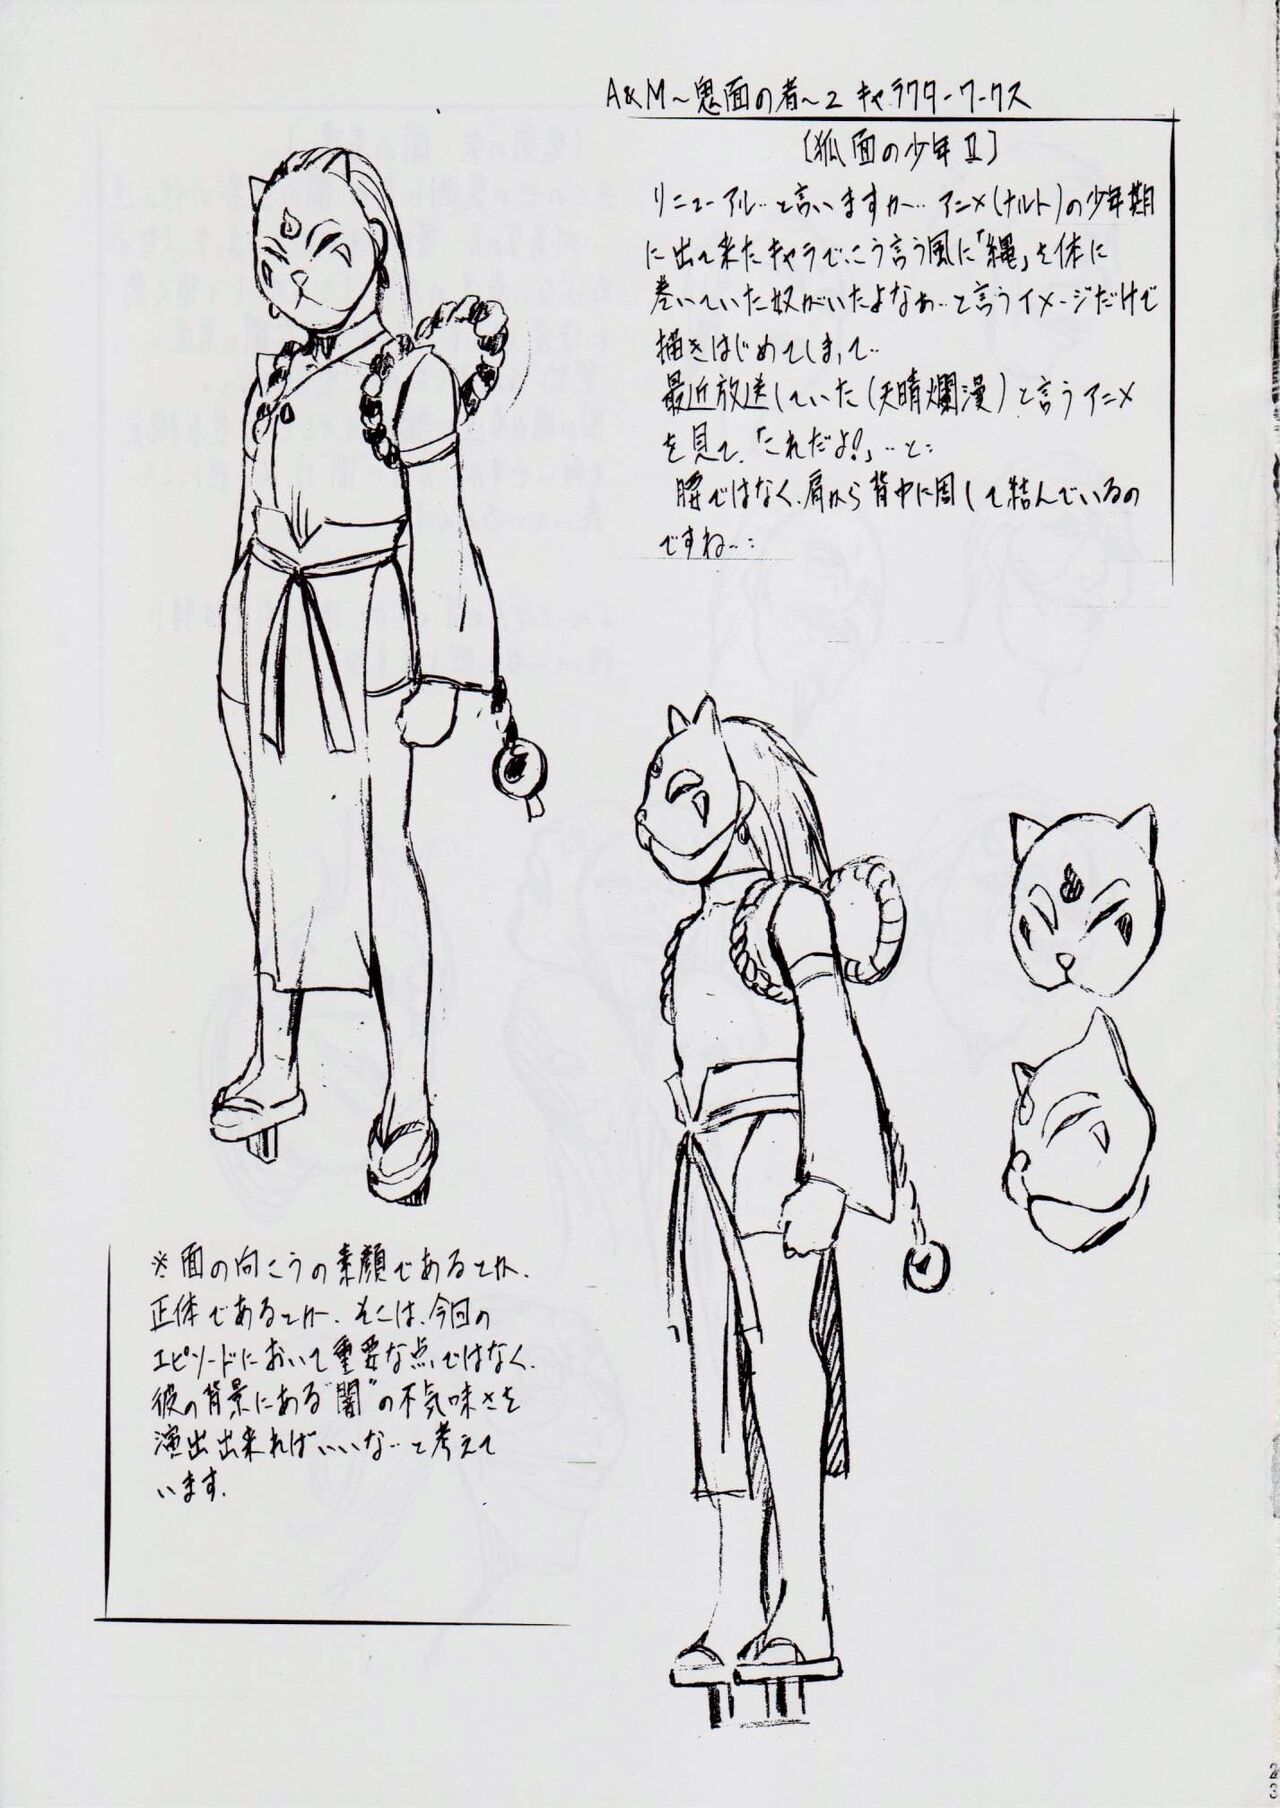 A&M～鬼面の者～2 キャラクターワークス
〔狐面の少年Ⅱ〕
リニューアル‥と言いますか‥アニメ(ナルト)の少年期
に出て来たキャラでこう言う風に「縄」を体に
巻いていた奴がいたよなぁ‥と言うイメージだけで
描きはじめてしまって‥
最近放送していた(天晴爛漫)と言うアニメ
を見て、「これだよ!」‥と‥
腰ではなく、肩から背中に周して結んでいるの
ですね～‥
※面の向こうの素顔であるとか、
正体であるとか、そこは、今回の
エピソードにおいて重要な点ではなく、
彼の背景にある“闇”の不気味さを
演出出来ればいいな‥と考えて
います.
23